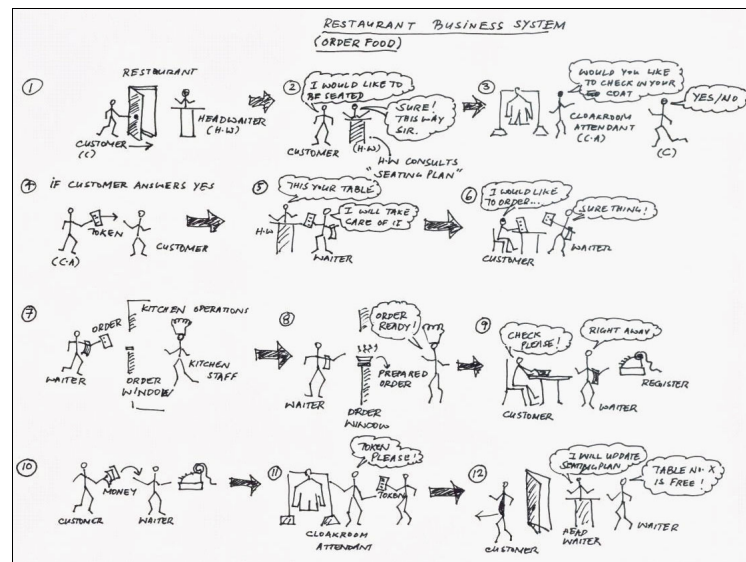 RESTAURANT BUSINESS SYSTEM
(ORDER FOOD)
1
RESTAURANT
CUSTOMER
(C)
HEADWAITER
(H.W)
2
I WOULD LIKE TO
BE SEATED
SURE!
THIS WAY
SIR.
CUSTOMER
(H.W)
H.W CONSULTS
"SEATING PLAN"
3
WOULD YOU LIKE
TO CHECK IN YOUR
COAT
YES/NO
CLOAKROOM
ATTENDANT
(C.A)
(C)
4
IF CUSTOMER ANSWERS YES
TOKEN
(C.A)
CUSTOMER
5
THIS YOUR TABLE
I WILL TAKE
CARE OF IT
H.W
WAITER
6
I WOULD LIKE
TO ORDER...
SURE THING!
CUSTOMER
WAITER
7
KITCHEN OPERATIONS
ORDER
WAITER
ORDER
WINDOW
KITCHEN
STAFF
8
ORDER
READY!
PREPARED
ORDER
WAITER
ORDER
WINDOW
9
CHECK
PLEASE!
RIGHT AWAY
REGISTER
CUSTOMER
WAITER
10
MONEY
CUSTOMER
WAITER
11
TOKEN
PLEASE!
TOKEN
CLOAKROOM
ATTENDANT
12
I WILL UPDATE
SEATING PLAN
TABLE NO. X
IS FREE!
CUSTOMER
HEAD
WAITER
WAITER